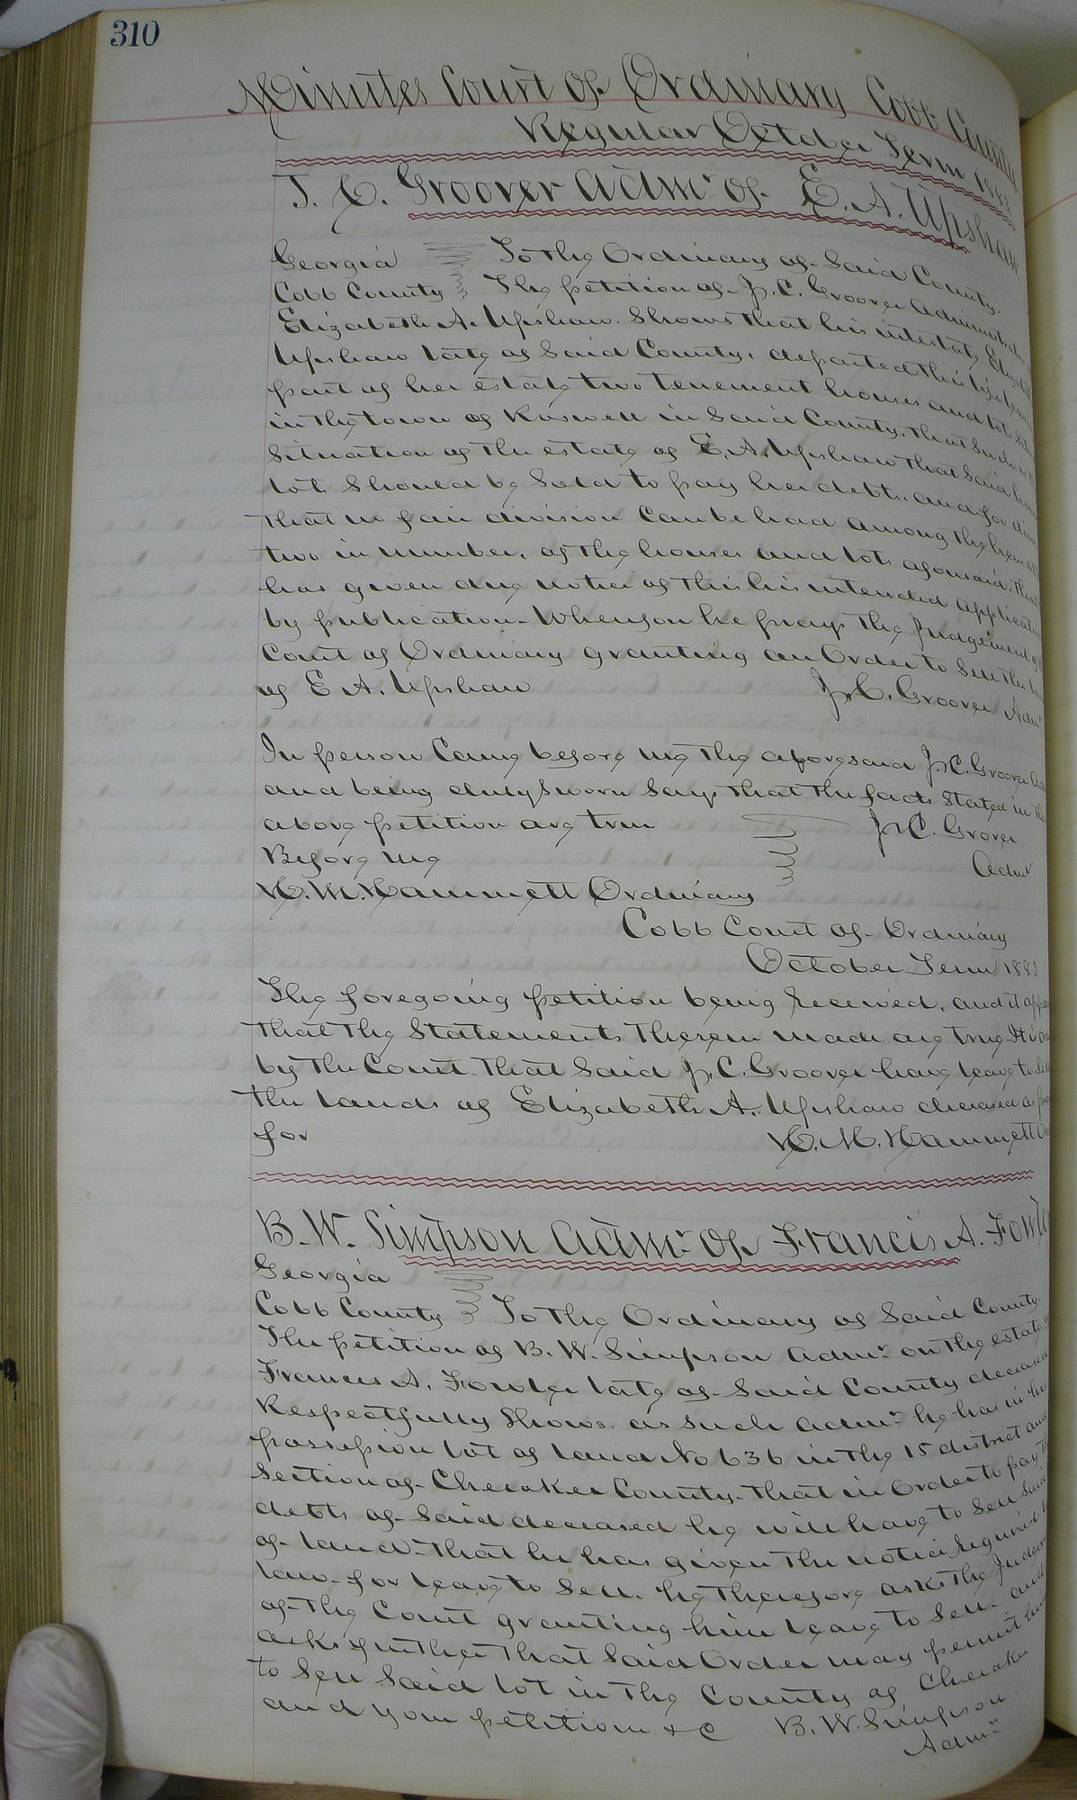 310
Minutes Court of Ordinary Cobb County
Regular October Term 188
J. C. Groover Admr of E. A. Upshaw
Georgia To the Ordinary of Said County.
Cobb County The petition of J. C. Groover Administrator
Elizabeth A. Upshaw. Shows that his intestate
Upshaw late of Said County, departed this life
part of her estate two tenement houses and lots
in the town of Roswell in Said County, that
Situation of the estate of E. A. Upshaw that Said
lots Should be Sold to pay her debts. and for
that no fair division Can be had among the heirs
two in number, of the houses and lots aforesaid. that
has given due notice of this his intended application
by publication. Wherefore he prays the Judgement of
Court of Ordinary granting an Order to Sell the
of E A. Upshaw J. C. Groover Admr
In person Came before me the aforesaid J. C. Groover
and being duly Sworn Says that the facts Stated in the
above petition are true J. C. Grover
Before me Admr
H. M. Hammett Ordinary
Cobb Court of Ordinary
October Term 1883
The foregoing petition being received, and it
that the Statements therein made are true. It is
by the Court that Said J. C. Groover have leave to
the lands of Elizabeth A. Upshaw deceased as
for H. M. Hammett
B. W. Simpson Admr of Francis A. Fowler
Georgia
Cobb County To the Ordinary of Said County.
The petition of B. W. Simpson Admr on the estate
Frances A. Fowler late of Said County deceased
Respectfully Shows. as Such Admr he has in his
possession lot of land No 636 in the 15 district and
Section of Cherokee County. that in Order to pay the
debts of Said deceased he will have to Sell Said
of land. that he has given the notice required
law for leave to Sell. he therefore asks the
of the Court granting him leave to Sell. and
asks further that Said Order may permit him
to Sell Said lot in the County of Cherokee
and your petitioner &c B. W. Simpson
Admr